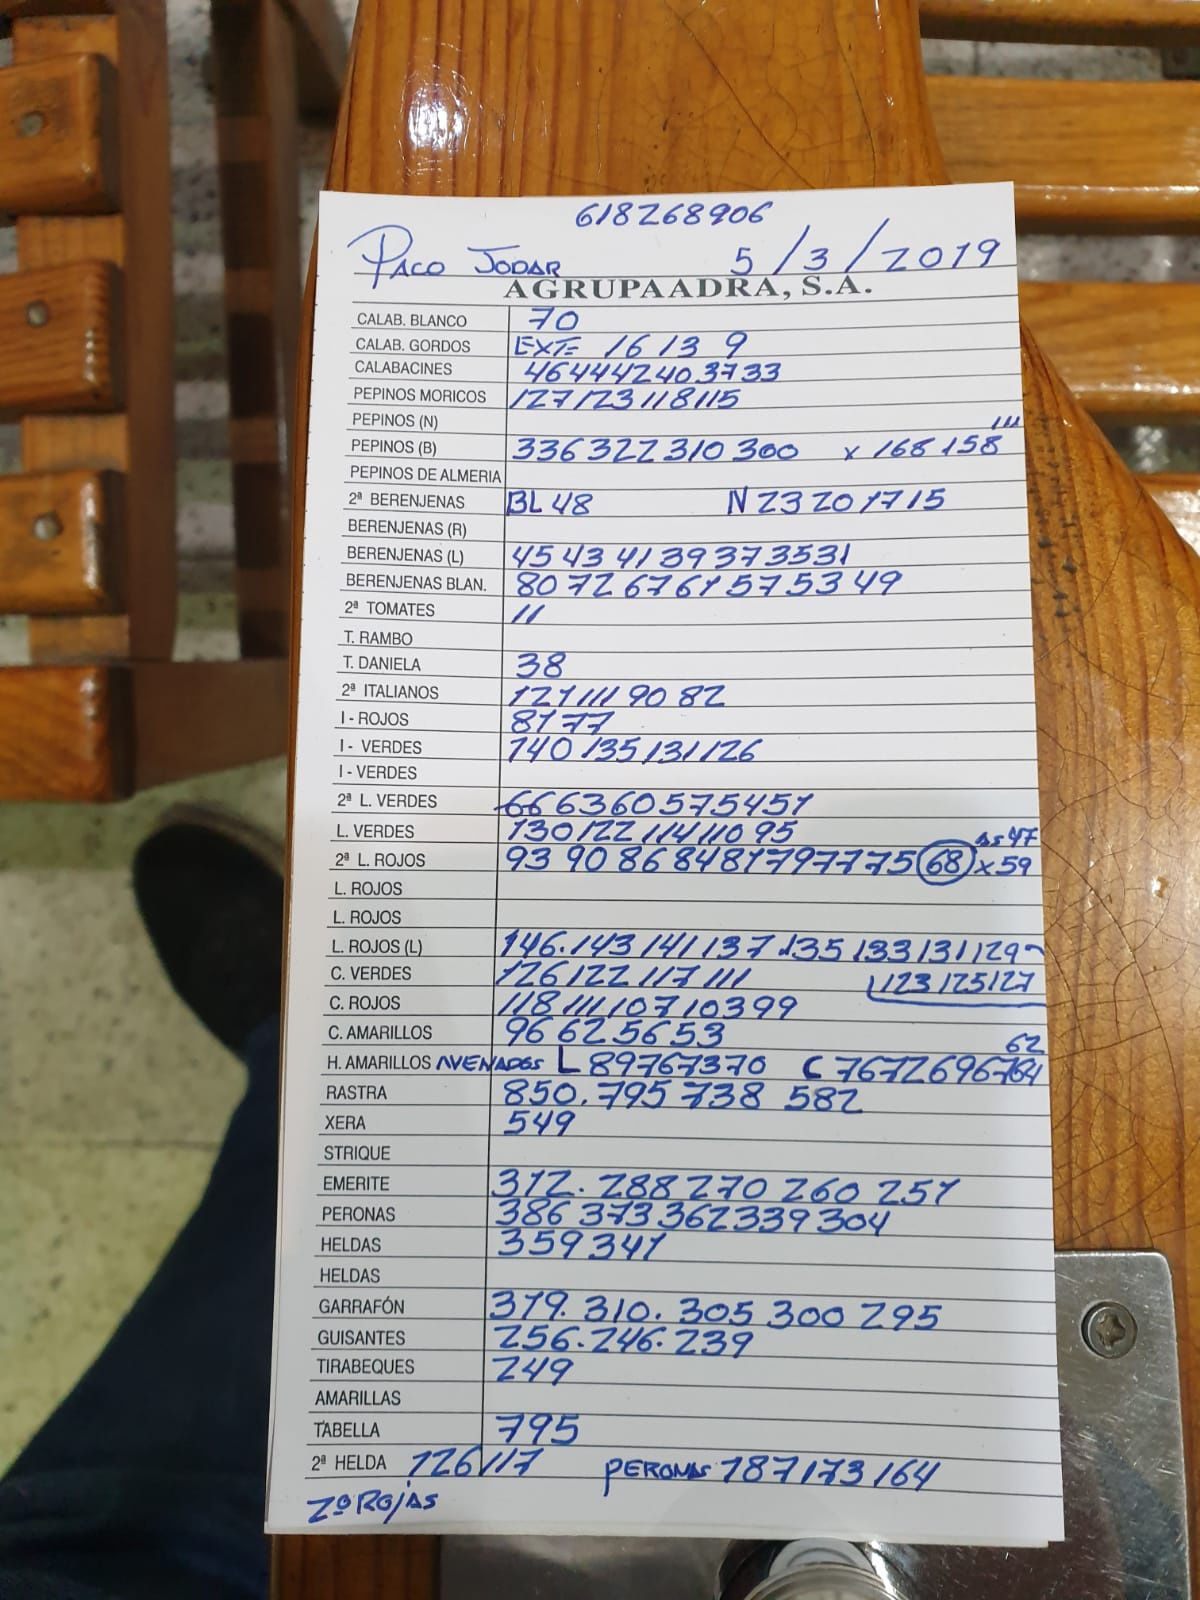 618268906
PACO JODAR 5/3/2019
AGRUPAADRA, S.A.
CALAB. BLANCO 70
CALAB. GORDOS EXT= 16 13 9
CALABACINES 46 44 42 40 37 33
PEPINOS MORICOS 127 123 118 115
PEPINOS (N) 111
PEPINOS (B) 336 322 310 300 x 168 158
PEPINOS DE ALMERIA
2ª BERENJENAS BL 48 N 23 20 17 15
BERENJENAS (R)
BERENJENAS (L) 45 43 41 39 37 35 31
BERENJENAS BLAN. 80 72 67 61 57 53 49
2ª TOMATES 11
T. RAMBO
T. DANIELA 38
2ª ITALIANOS 121 111 90 82
I - ROJOS 81 77
I - VERDES 140 135 131 126
I - VERDES
2ª L. VERDES 66 63 60 57 54 51
L. VERDES 130 122 114 110 95 47
2ª L. ROJOS 93 90 86 84 81 79 77 75 68 x 59
L. ROJOS
L. ROJOS
L. ROJOS (L) 146. 143 141 137 135 133 131 129
C. VERDES 126 122 117 111 123 125 127
C. ROJOS 118 111 107 103 99
C. AMARILLOS 96 62 56 53 62
H. AMARILLOS AVENADOS L 89 76 73 70 C 76 72 69 67 64
RASTRA 850. 795 738 582
XERA 549
STRIQUE
EMERITE 312. 288 270 260 251
PERONAS 386 373 362 339 304
HELDAS 359 341
HELDAS
GARRAFÓN 319. 310. 305 300 295
GUISANTES 256. 246. 239
TIRABEQUES 249
AMARILLAS
TABELLA 795
2ª HELDA 126 117 PERONAS 187 173 164
2º ROJAS